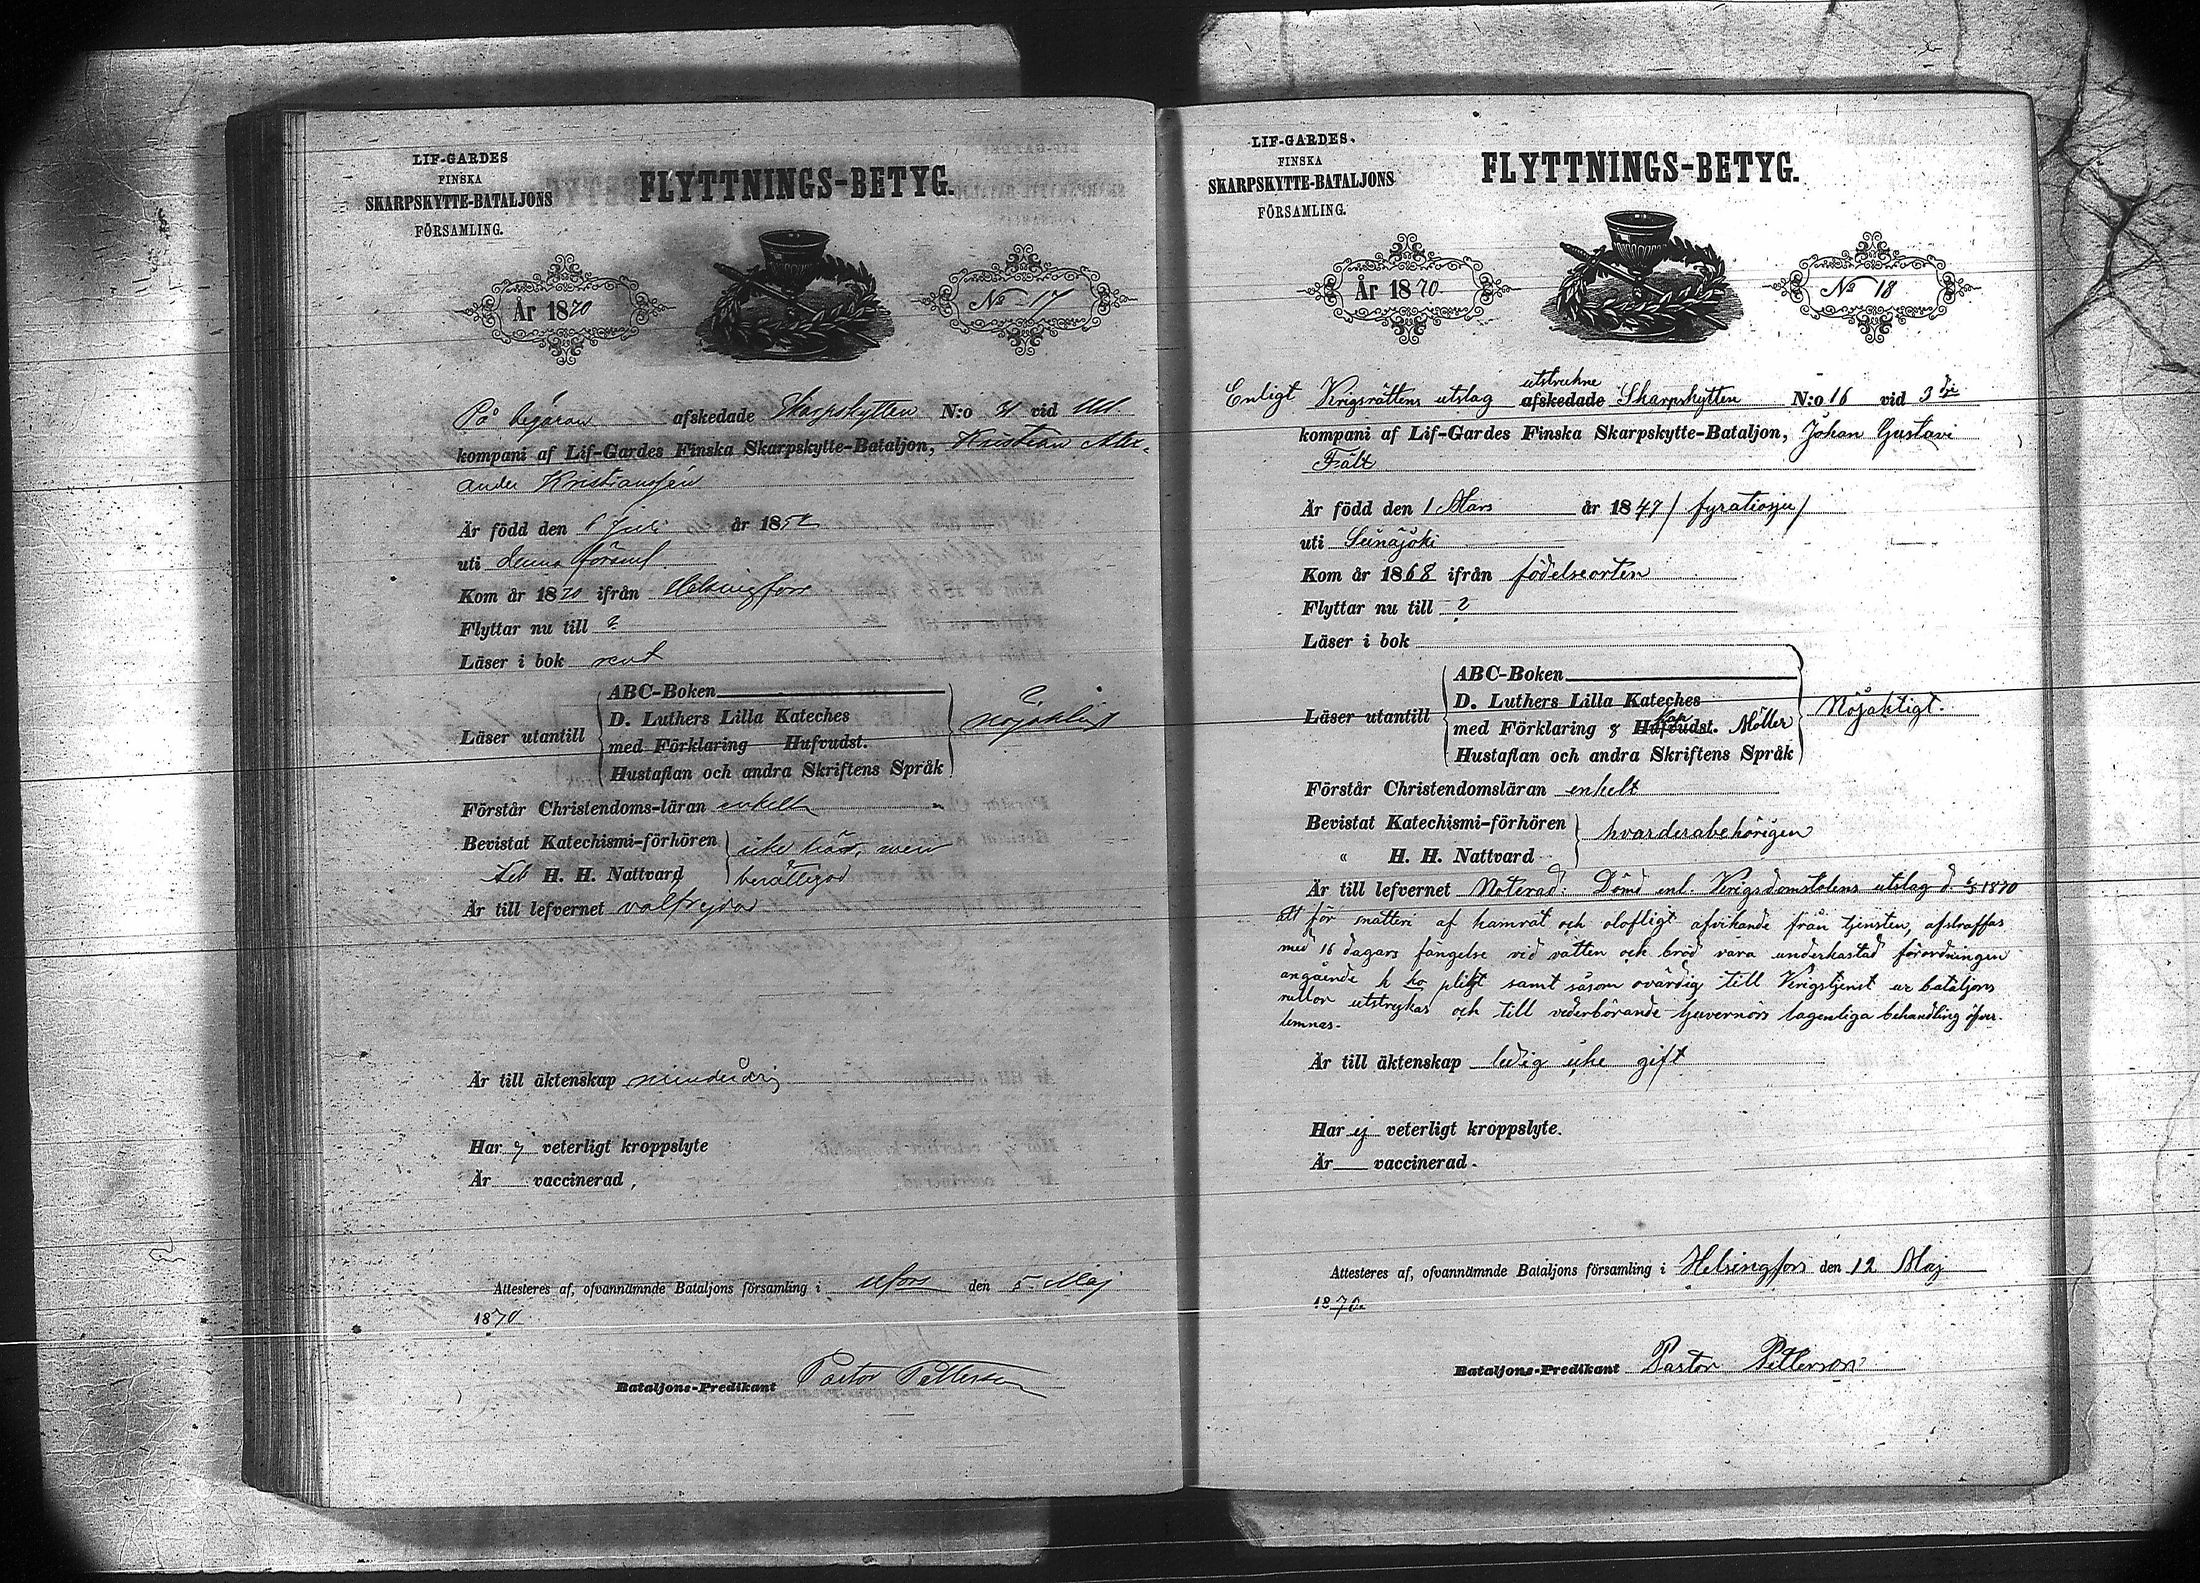 LIF-GARDES
FINSKA
SKARPSKYTTE-BATALJONS
FÖRSAMLING.
FLYTTNINGS-BETYG.
År 1870
No 17
På begäran afskedade Skarpskytten N:o 31 vid
kompani af Lif-Gardes Finska Skarpskytte-Bataljon, Kristian Alex-
ander Kristiansén
Är född den 6 Juli år 1852
uti denna församl
Kom år 1870 ifrån Helsingfors
Flyttar nu till ?
Läser i bok rent
Läser utantill
ABC-Boken
D. Luthers Lilla Kateches
med Förklaring Hufvudst.
Hustaflan och andra Skriftens Språk
Nöjaktligt
Förstår Christendoms-läran enkelt
Bevistat Katechismi-förhören
H. H. Nattvard
icke här, men
berättigad
Är till lefvernet välfrejdad
Är till äktenskap minderårig
Har ej veterligt kroppslyte
Är vaccinerad,
Attesteres af, ofvannämnde Bataljons församling i Hfors den 5 Maj
1870
Bataljons-Predikant Pastor Pettersson
LIF-GARDES.
FINSKA
SKARPSKYTTE-BATALJONS
FÖRSAMLING.
FLYTTNINGS-BETYG.
År 1870.
No 18
utstrukne
Enligt Krigsrättens utslag afskedade Skarpskytten N:o 16 vid 3dje
kompani af Lif-Gardes Finska Skarpskytte-Bataljon, Johan Gustavi
Fält
Är född den 1 Mars år 1847 / fyratiosju /
uti Seinäjoki
Kom år 1868 ifrån födelseorten
Flyttar nu till ?
Läser i bok
Läser utantill
ABC-Boken
D. Luthers Lilla Kateches
med Förklaring & Hufvudst. Möller
Hustaflan och andra Skriftens Språk
Nöjaktligt.
Förstår Christendomsläran enkelt
Bevistat Katechismi-förhören
" H. H. Nattvard
hvardera behörigen
Är till lefvernet Noterad: Dömd enl. Krigsdomstolens utslag d. 6/5 1870
att för snatteri af kamrat och olofligt afvikande från tjensten, afstraffas
med 16 dagars fängelse vid vatten och bröd vara underkastad förordningen
angående k ko plikt samt såsom ovärdig till Krigstjenst ur bataljons
rullor utstrykas och till vederbörande Guvernörs lagenliga behandling öfver-
lemnas.
Är till äktenskap ledig icke gift
Har ej veterligt kroppslyte.
Är vaccinerad.
Attesteres af, ofvannämnde Bataljons församling i Helsingfors den 12 Maj
1870.
Bataljons-Predikant Pastor Pettersson